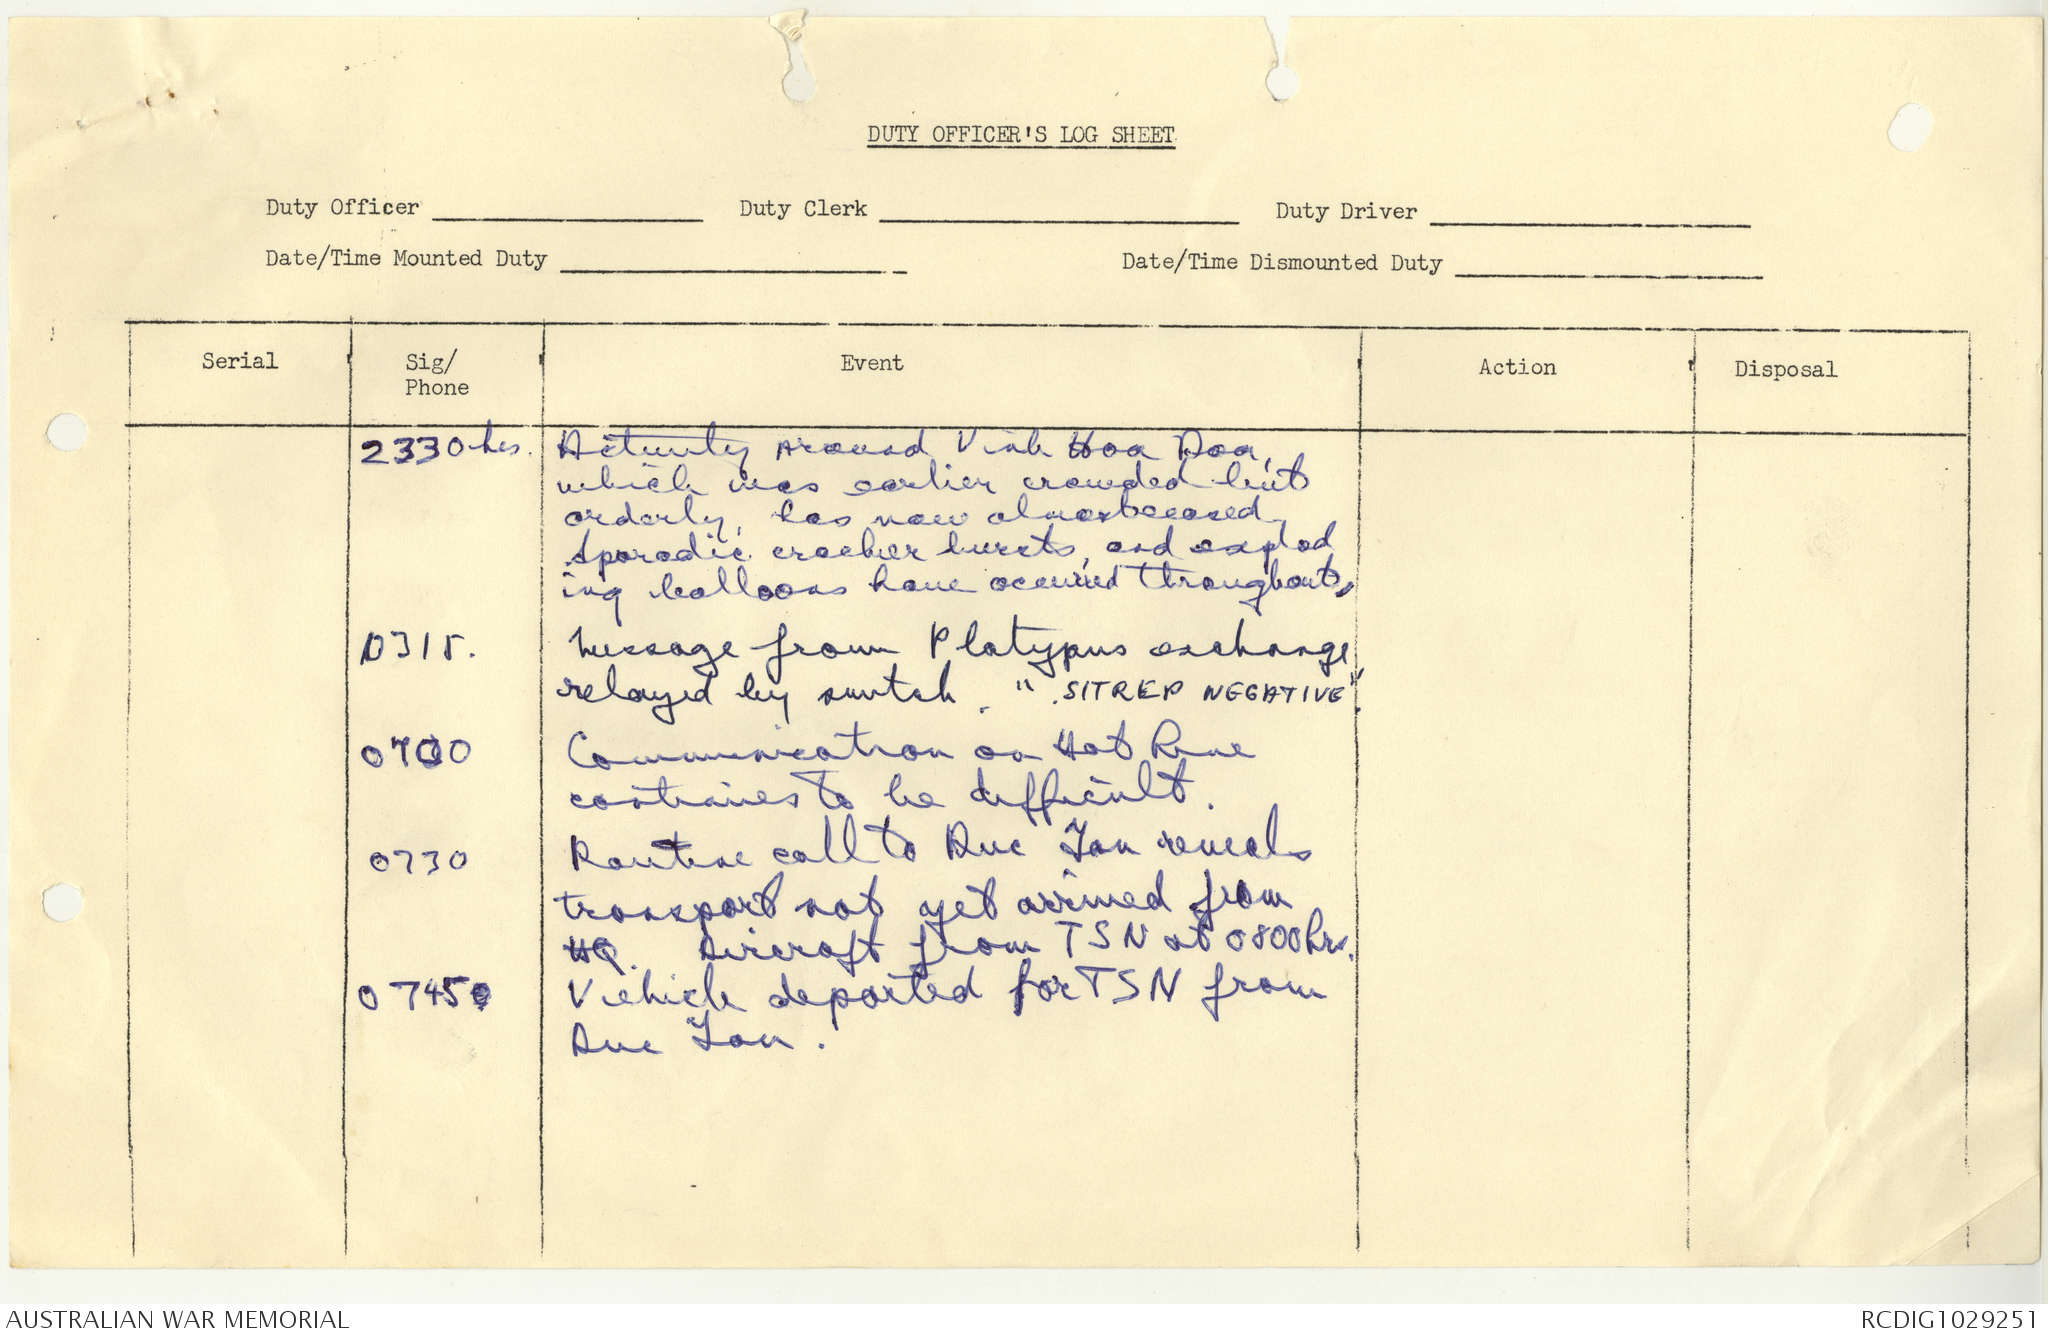 DUTY OFFICER'S LOG SHEET
Duty Officer Duty Clerk Duty Driver
Date/Time Mounted Duty Date/Time Dismounted Duty
Serial Sig/ Event Action Disposal
Phone
2330 hrs. Activity around Vinh Hoa Doa,
which was earlier crowded but
orderly, has now almost ceased
Sporadic cracker bursts, and explod
ing balloons have occurred throughout.
0315. Message from Platypus exchange
relayed by switch. "SITREP NEGATIVE".
0700 Communication on Hot Line
continues to be difficult.
0730 Routine call to Duc Tan reveals
transport not yet arrived from
HQ. Aircraft from TSN at 0800hrs.
0745 Vehicle departed for TSN from
Duc Tan.
AUSTRALIAN WAR MEMORIAL RCDIG1029251